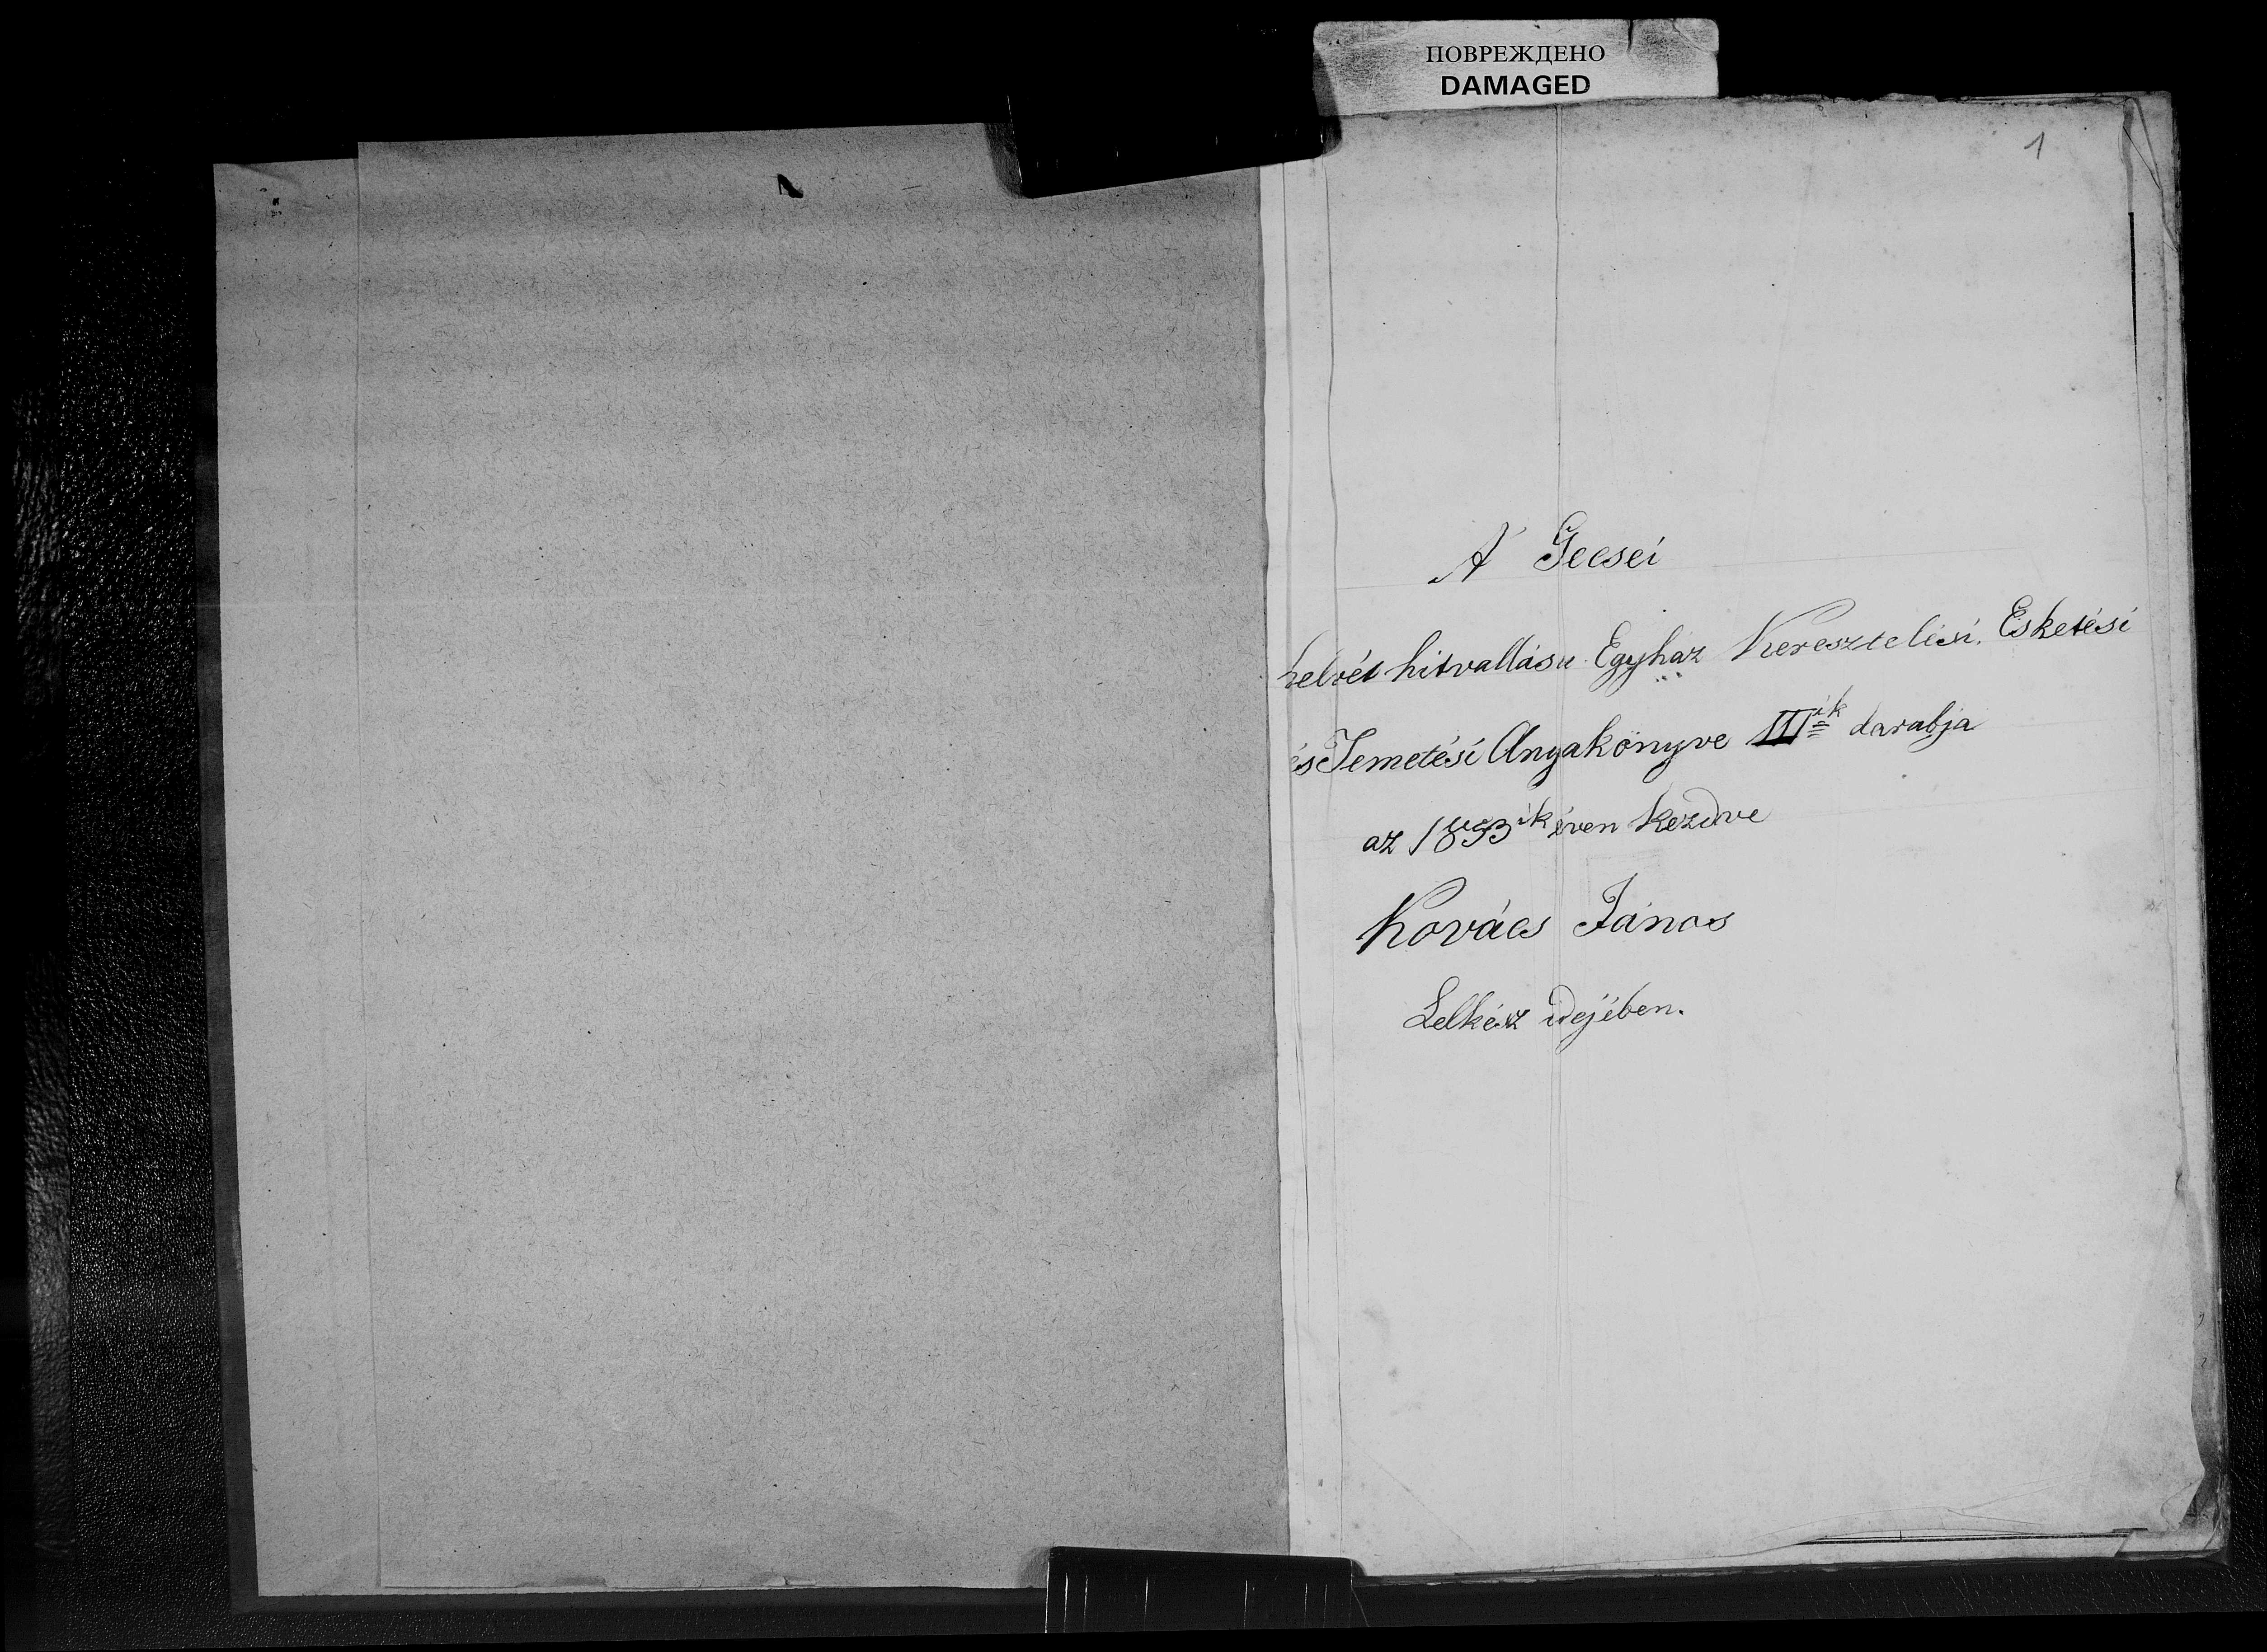 ПОВРЕЖДЕНО
DAMAGED
1
A' Gecsei
helvét hitvallásu Egyház Keresztelési, Esketési
és Temetési Anyakönyve III^ik darabja
az 1853^ik éven kezdve
Kovács János
Lelkész idejében.